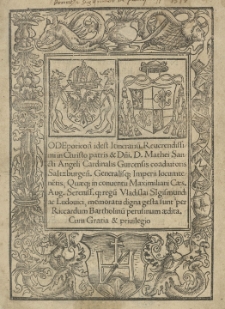 ODEporicon idest Itinerariū Reuerendissi
mi in Christo patris & Dñi. D. Mathei San
cti Angeli Cardinalis Gurcensis coadiutoris
Saltzburgen̄. Generalisq; Imperii locumte
nentis, Quæq; in conuentu Maximiliani Cæs.
Aug. Serenissq; regū Vladislai Sigismundi
ac Ludouici, memoratu digna gesta sunt per
Riccardum Bartholinū perusinum ædita,
Cum Gratia & priuilegio